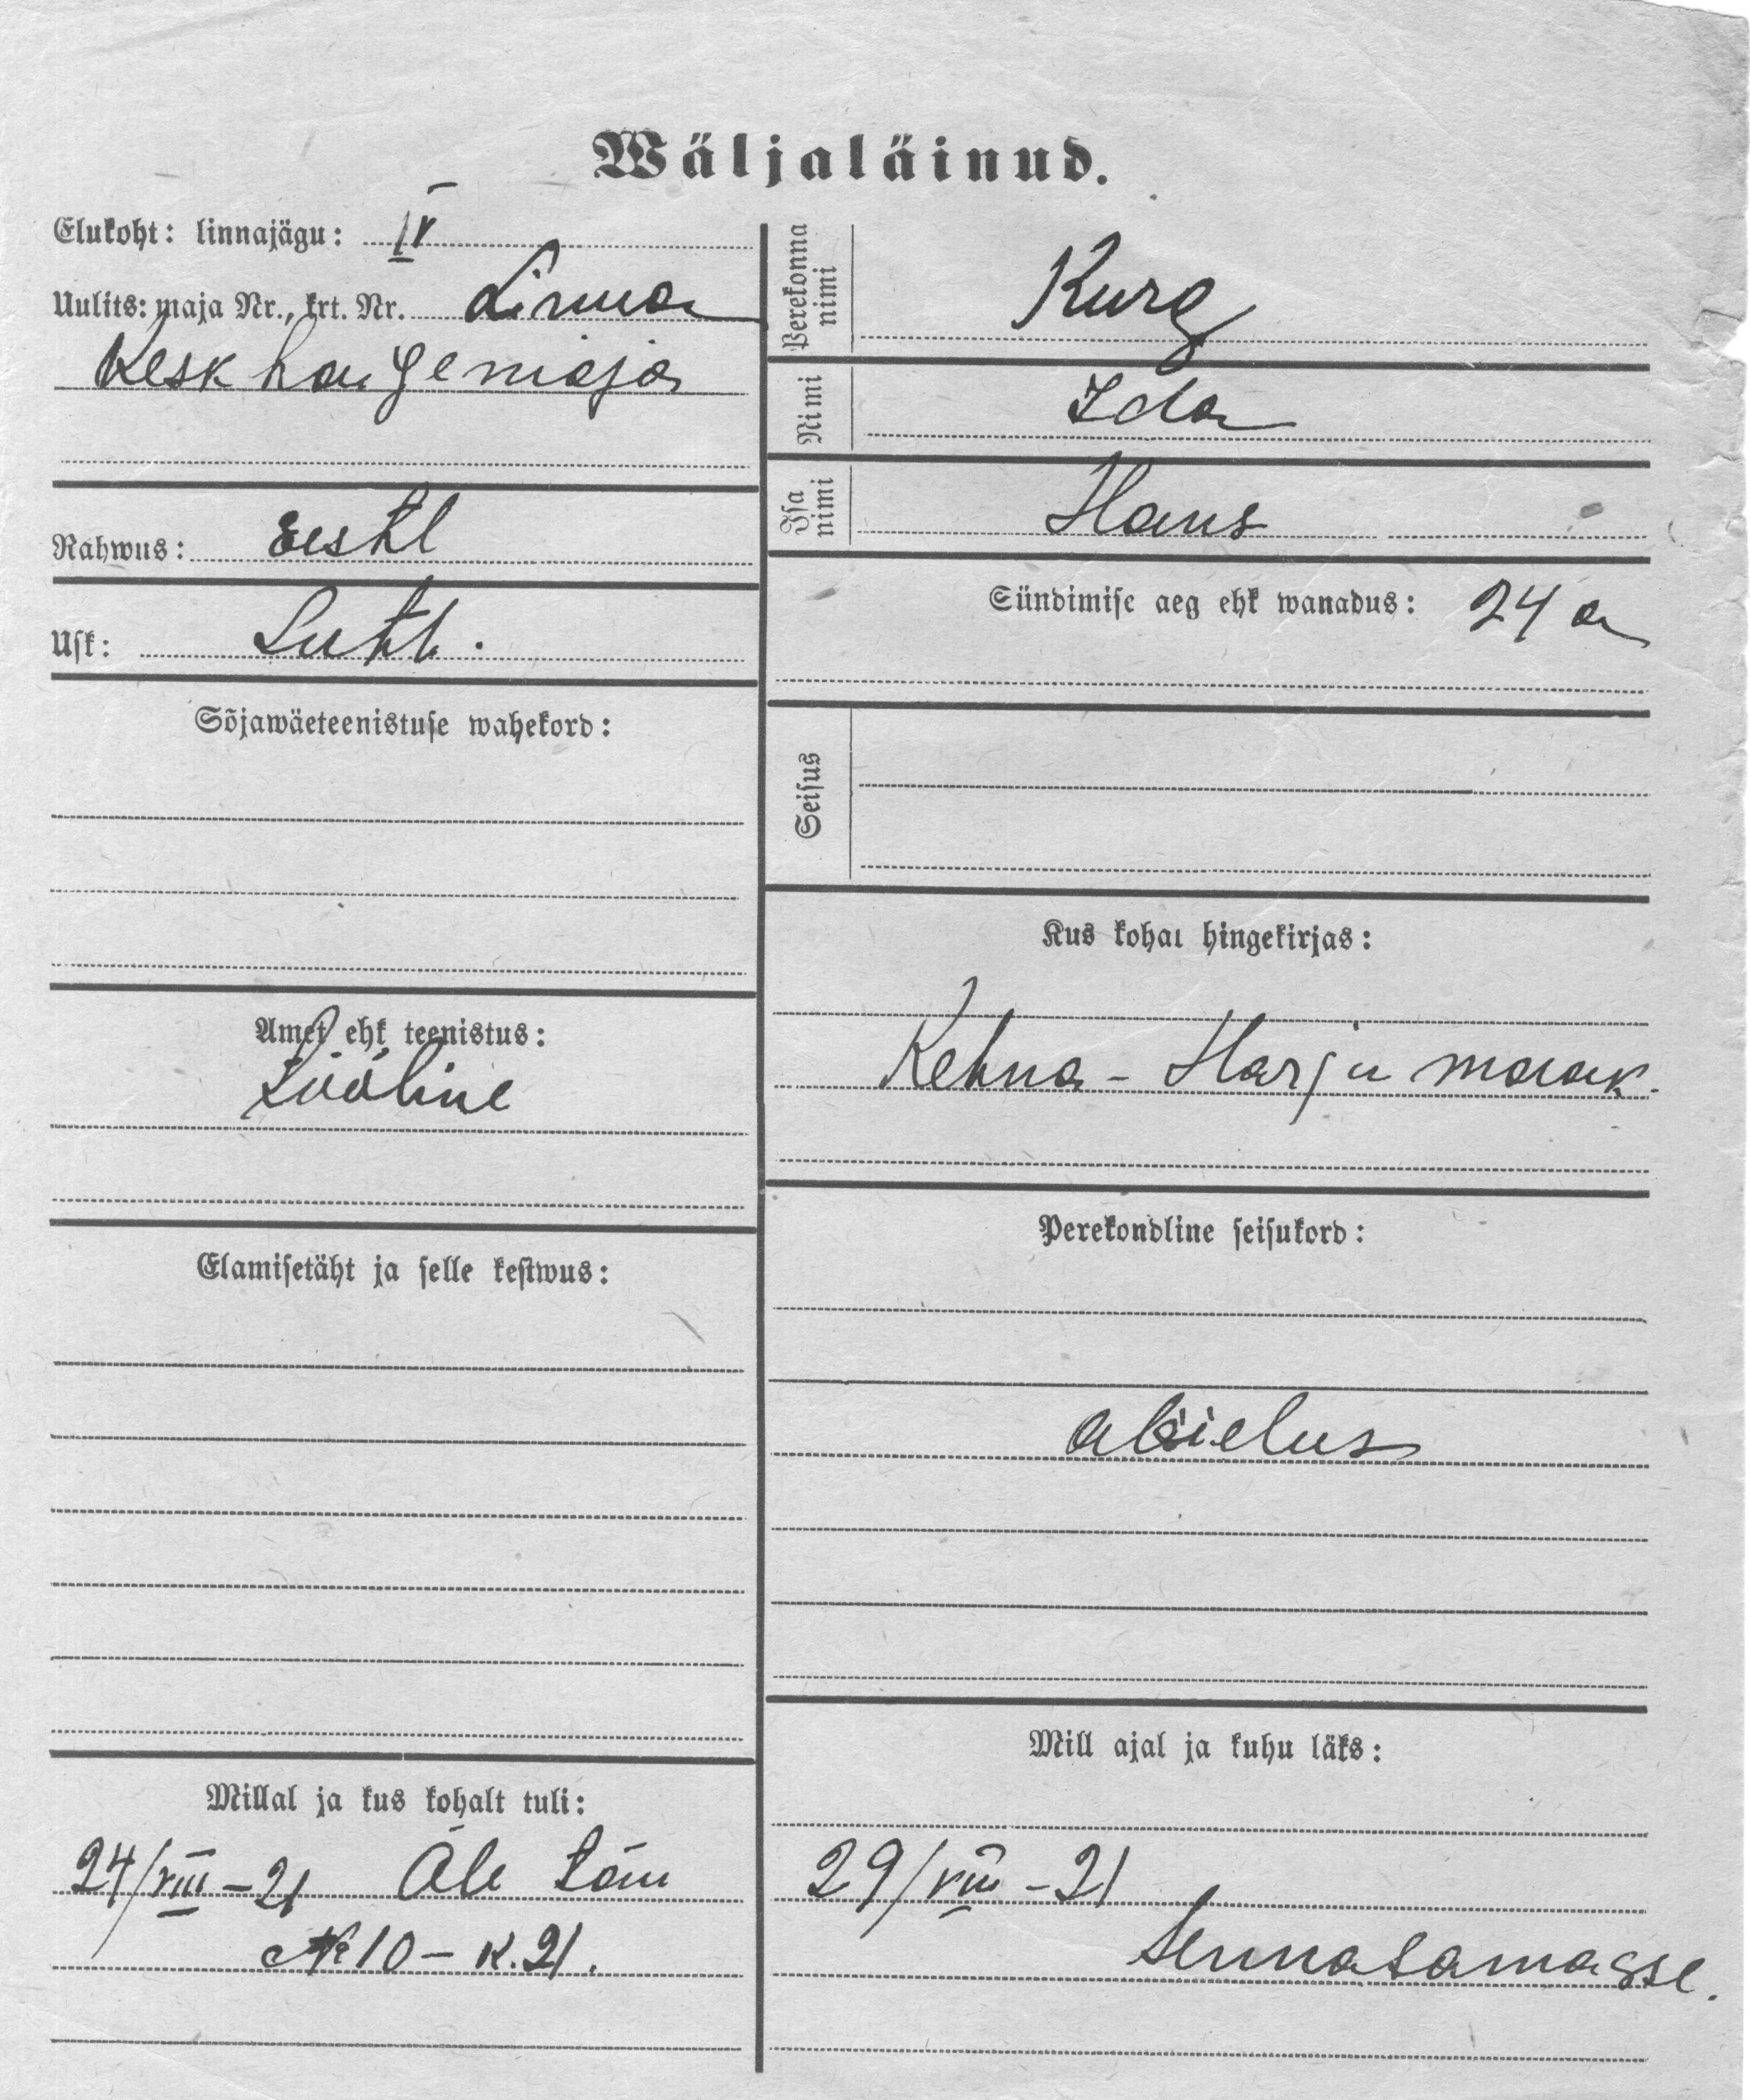 Wäljaläinud.
Elukoht: linnajägu: IV
Uulits: maja Nr., krt. Nr. Linna
Kesk haigemaja
Rahwus: Eestl
Usk: Luth.
Sõjawäeteenistuse wahekord:
Amet ehk teenistus:
Tööline
Elamisetäht ja selle kestwus:
Millal ja kus kohalt tuli:
24/VIII – 21 Õle tän
№ 10 – K. 21.
Perekonna nimi
Kurg
Nimi
Ida
Isa nimi
Hans
Sündimise aeg ehk wanadus: 24 a
Seisus
Kus kohal hingekirjas:
Kehna - Harju maak.
Perekondline seisukord:
abielus
Mill ajal ja kuhu läks:
29/VIII – 21
Sennasamasse.